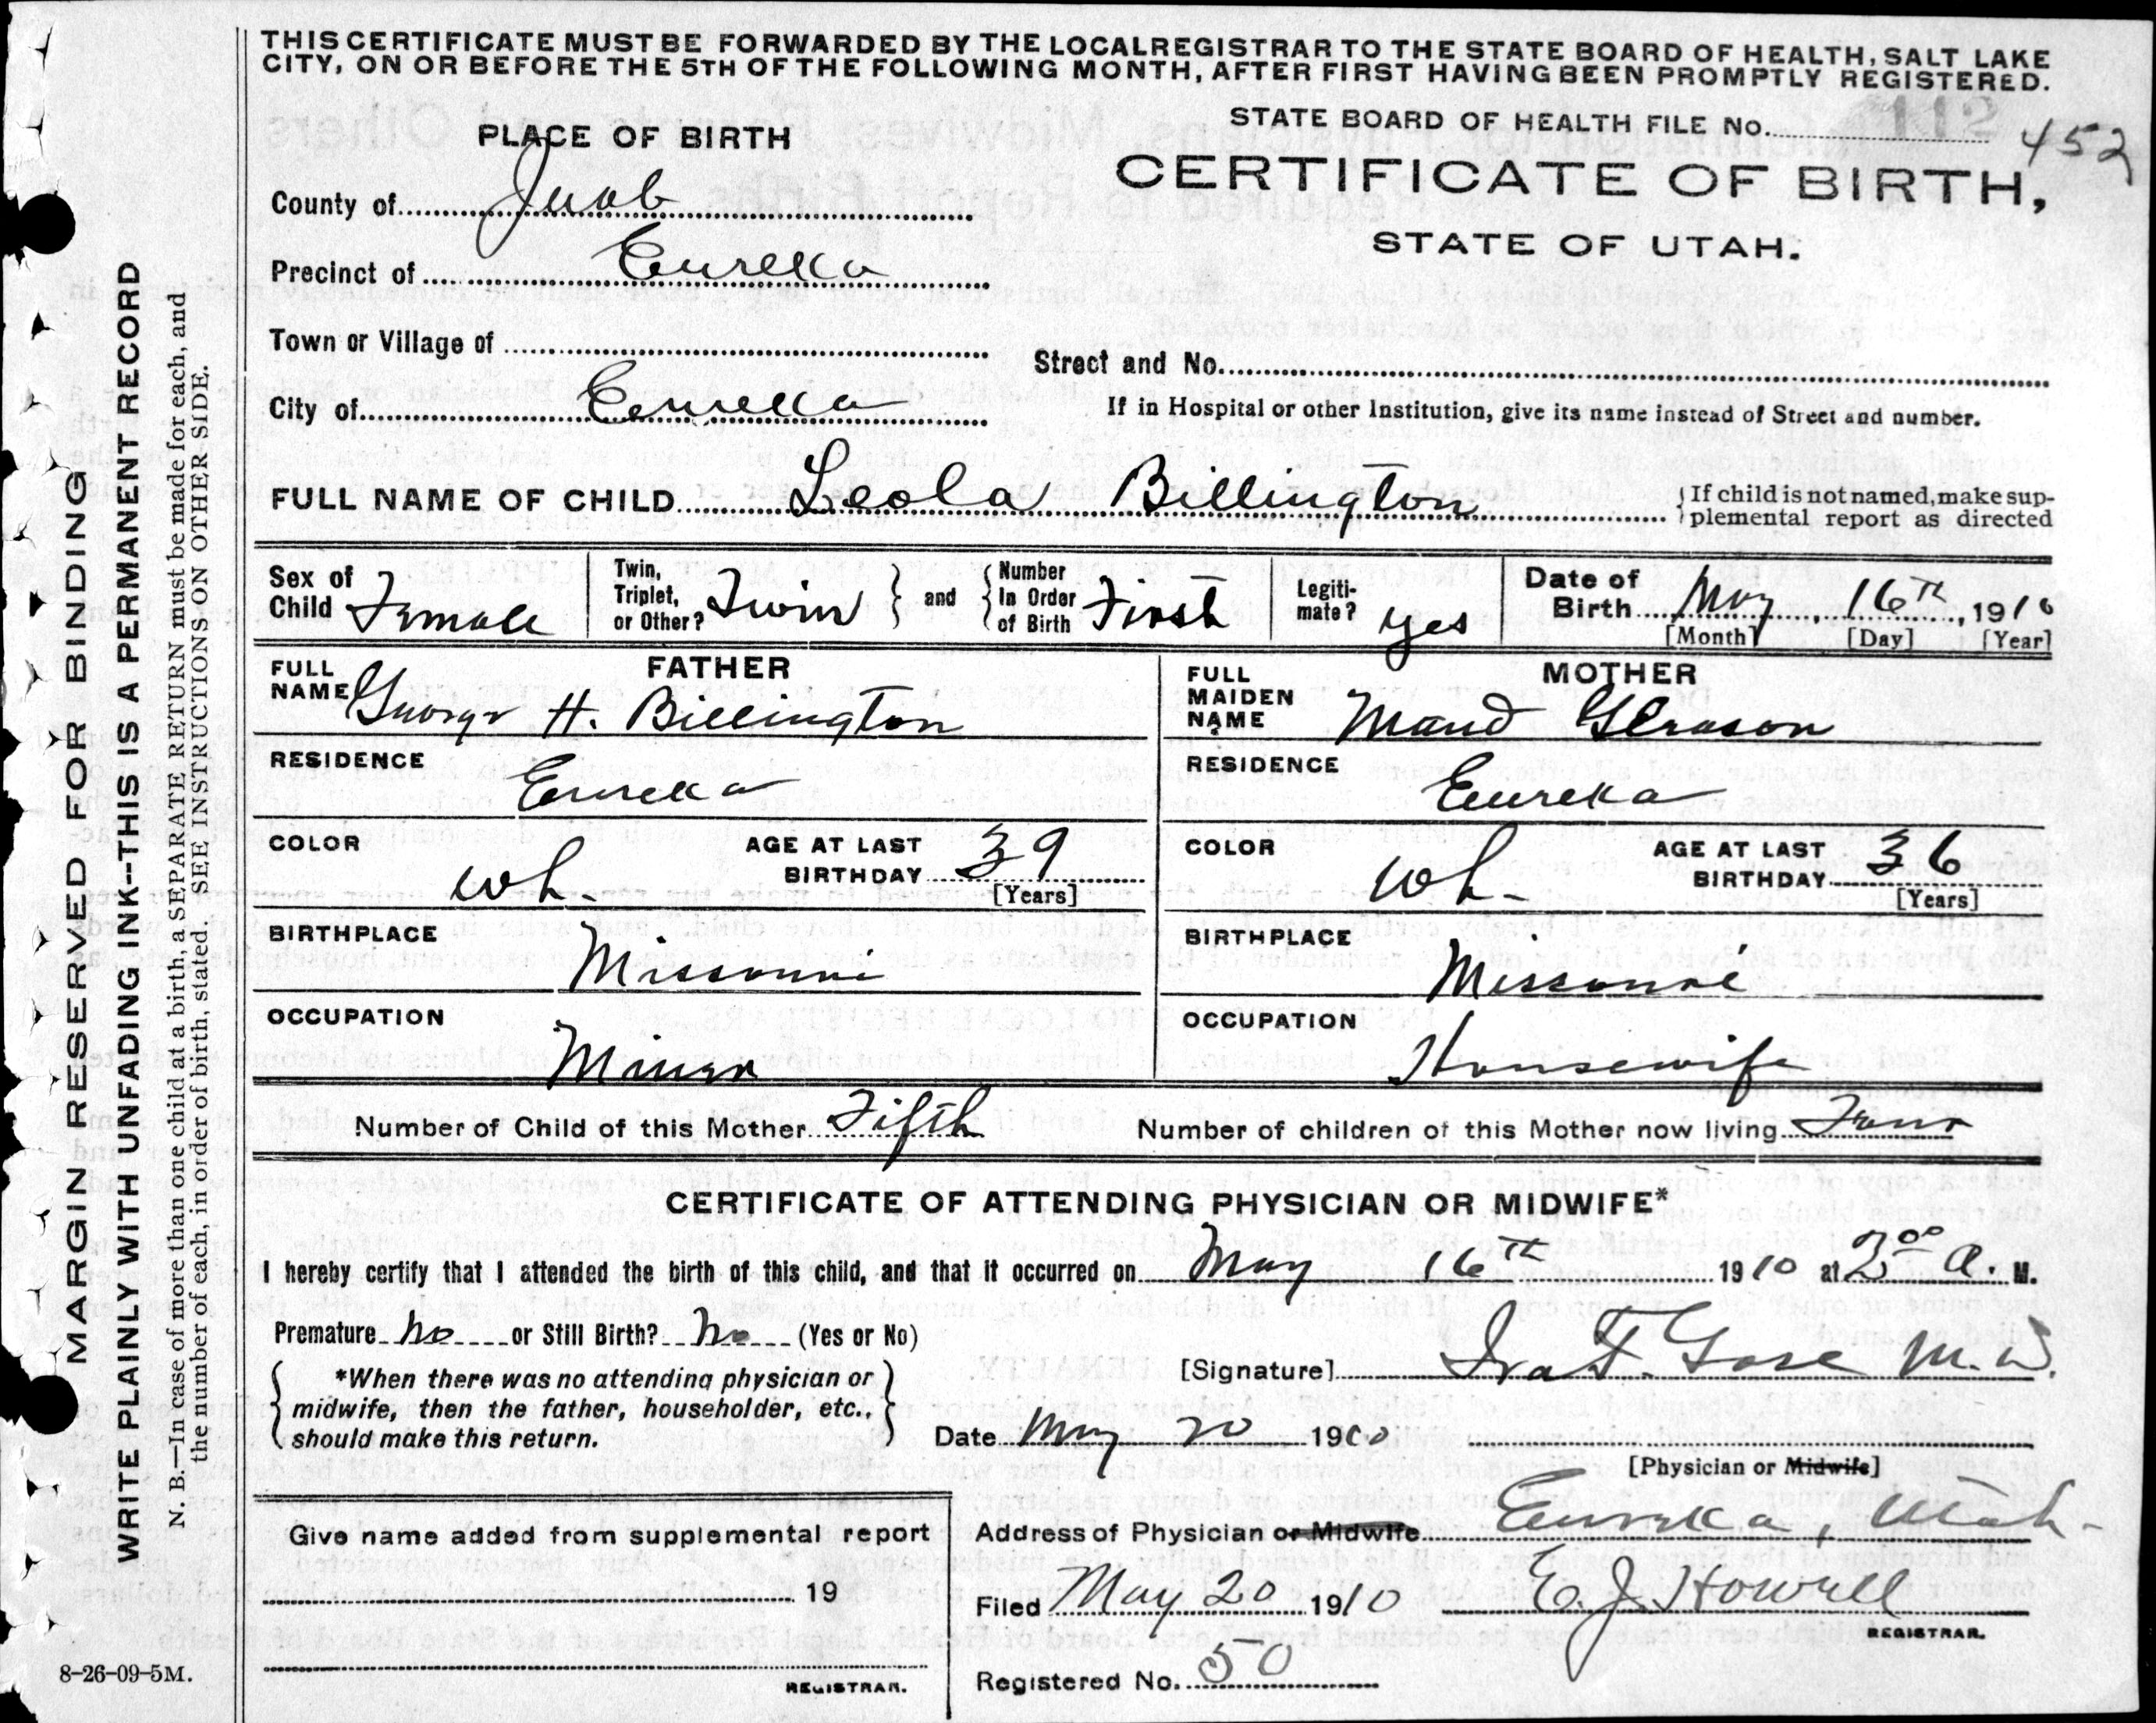 THIS CERTIFICATE MUST BE FORWARDED BY THE LOCAL REGISTRAR TO THE STATE BOARD OF HEALTH, SALT LAKE
CITY, ON OR BEFORE THE 5TH OF THE FOLLOWING MONTH, AFTER FIRST HAVING BEEN PROMPTLY REGISTERED.
STATE BOARD OF HEALTH FILE No. 452
PLACE OF BIRTH
CERTIFICATE OF BIRTH,
STATE OF UTAH.
County of Juab
Precinct of Eureka
Town or Village of
Street and No.
City of Eureka
If in Hospital or other Institution, give its name instead of Street and number.
FULL NAME OF CHILD Leola Billington
If child is not named, make sup-
plemental report as directed
Sex of Child Female
Twin, Triplet, or Other? Twin
and
Number In Order of Birth First
Legiti-mate? yes
Date of Birth May 16th, 1910
[Month] [Day] [Year]
FATHER
FULL NAME George H. Billington
RESIDENCE Eureka
COLOR wh. AGE AT LAST BIRTHDAY 39
[Years]
BIRTHPLACE Missouri
OCCUPATION Miner
MOTHER
FULL MAIDEN NAME Maud Gleason
RESIDENCE Eureka
COLOR wh- AGE AT LAST BIRTHDAY 36
[Years]
BIRTHPLACE Missouri
OCCUPATION Housewife
Number of Child of this Mother Fifth
Number of children of this Mother now living Four
CERTIFICATE OF ATTENDING PHYSICIAN OR MIDWIFE*
I hereby certify that I attended the birth of this child, and that it occurred on May 16th 1910 at A. M.
Premature No or Still Birth? No (Yes or No)
*When there was no attending physician or
midwife, then the father, householder, etc.,
should make this return.
[Signature] Ira F. Gose M.D.
Date May 20 1910
[Physician or Midwife]
Address of Physician or Midwife Eureka, Utah-
Give name added from supplemental report
19
REGISTRAR.
Filed May 20 1910 E. J. Howell
REGISTRAR.
Registered No. 50
8-26-09-5M.
MARGIN RESERVED FOR BINDING
WRITE PLAINLY WITH UNFADING INK--THIS IS A PERMANENT RECORD
N. B.—In case of more than one child at a birth, a SEPARATE RETURN must be made for each, and
the number of each, in order of birth, stated. SEE INSTRUCTIONS ON OTHER SIDE.